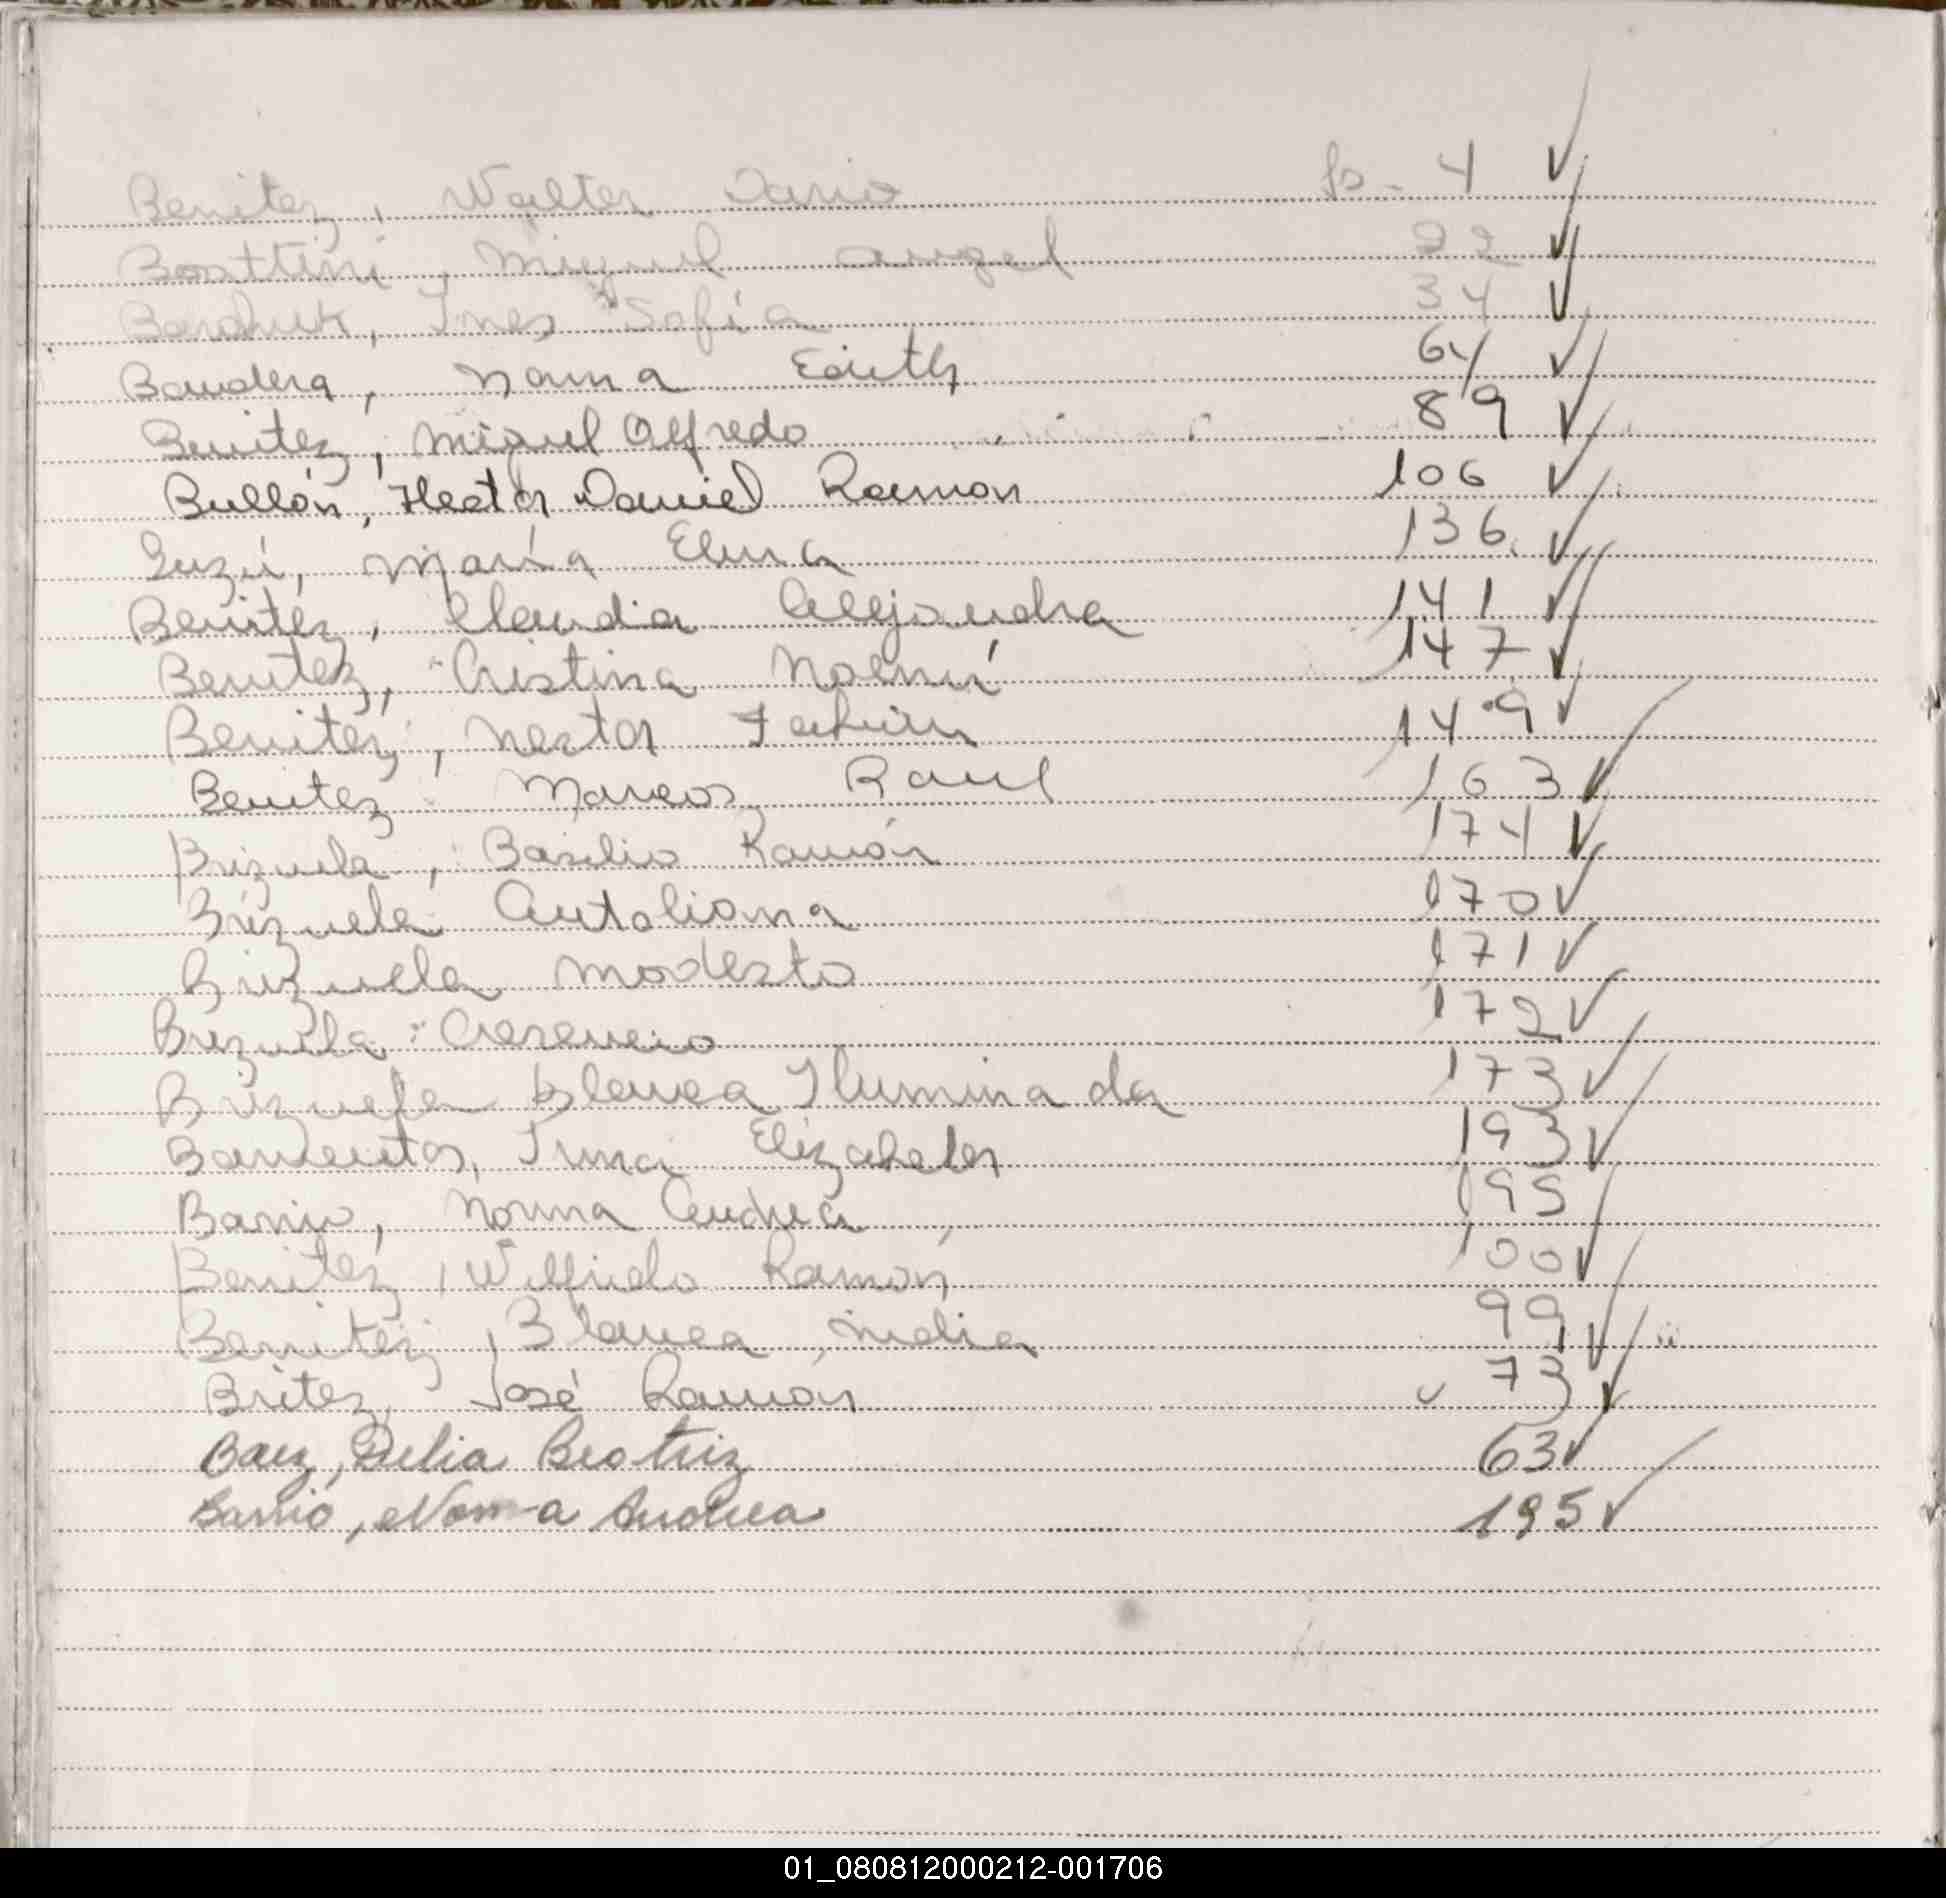 Benitez, Walter Dario fs. 4 ✓
Boattini, Miguel angel 22 ✓
Bondruk, Ines Sofia 34 ✓
Bandera, Norma Edith 64 ✓
Benitez, Miguel Alfredo 89 ✓
Bullón, Hector Daniel Ramon 106 ✓
María Elena 136 ✓
Benitez, Claudia Alejandra 141 ✓
Benitez, Cristina Noemí 147 ✓
Benitez, Nestor Fabián 149 ✓
Benitez Marcos Raul 163 ✓
Brizuela, Basilio Ramón 174 ✓
Brizuela 170 ✓
Brizuela Modesto 171 ✓
Brizuela Cresencio 172 ✓
Brizuela Blanca Iluminada 173 ✓
Barrientos, Irma Elizabeth 193 ✓
Barrio, Norma Andrea 195
Benitez, Wilfrido Ramón 100 ✓
Benitez, Blanca 99 ✓
Britez, José Ramón 73 ✓
Baez, Delia Beatriz 63 ✓
Barrio, Norma Andrea 195 ✓
01_080812000212-001706